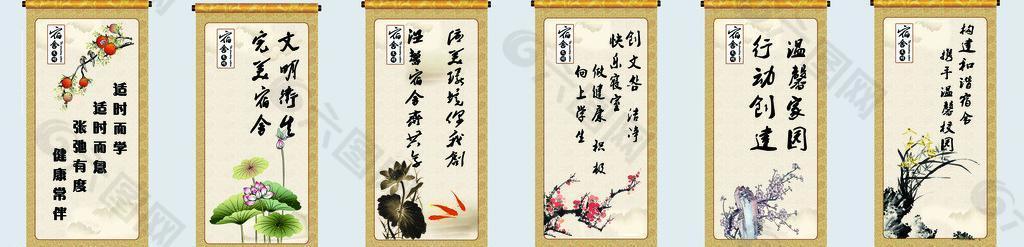 适时而学
适时而息
张弛有度
健康常伴
宿舍
文明衛生
完美宿舍
宿舍
美環境你我創
温馨宿舍齊共享
宿舍
创文名 洁净
快乐寝室
做健康 积极
向上学生
宿舍
温馨家园
行动创建
宿舍
构建和谐宿舍
携手温馨校园